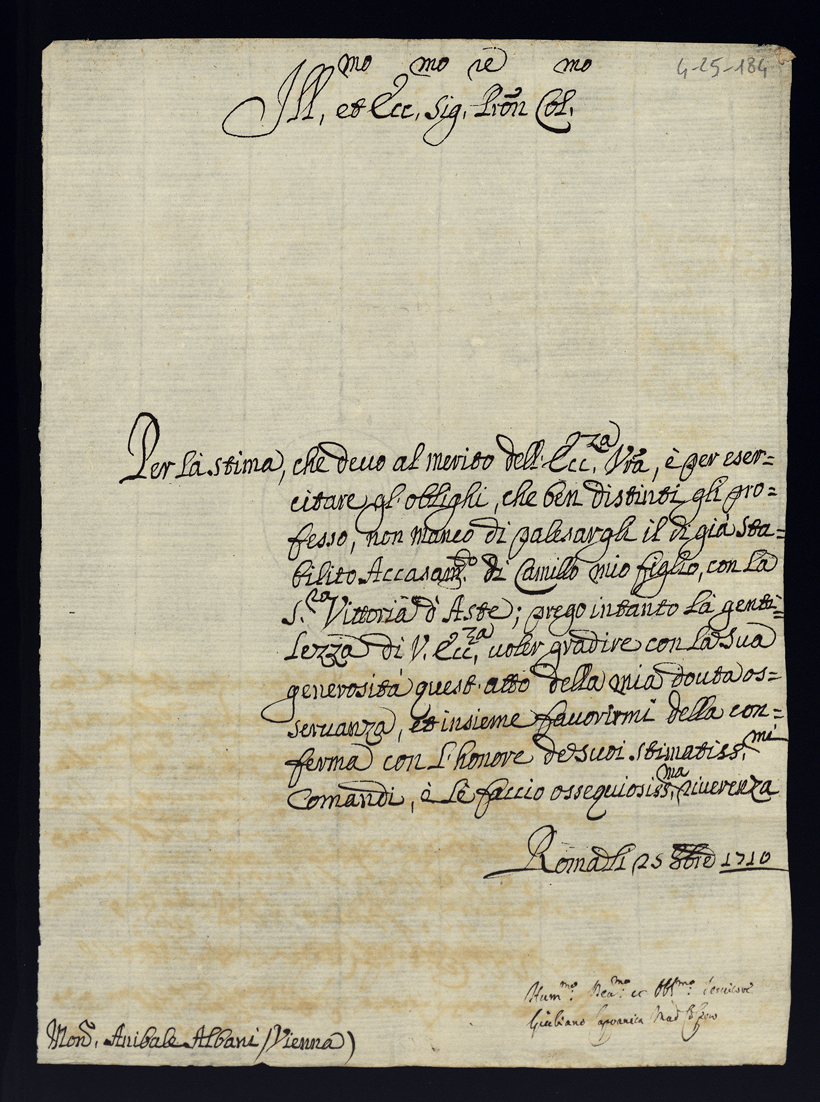 4-25-184
Ill.mo et Ecc.mo Sig.re Pron Col.mo
Per la stima, che deuo al merito dell'Ecc.za Vrã, è per eser=
citare gl'oblighi, che ben distinti gli pro=
fesso, non manco di palesargli il di già sta=
bilito Accasam.to di Camillo mio figlio, con la
S.ra Vittoria d'Aste; prego intanto la genti=
lezza di V. Ecc.za, uoler gradire con la sua
generosità quest'atto della mia douta os=
seruanza, et insieme fauorirmi della con=
ferma con l'honore de suoi stimatiss.mi
Comandi, è le faccio ossequiosiss.ma riuerenza
Roma li 25 Xbre 1710
Hum.mo Deu.mo et Obl.mo Seruitore
Giuliano Capranica
Mon.r Anibale Albani (Vienna)